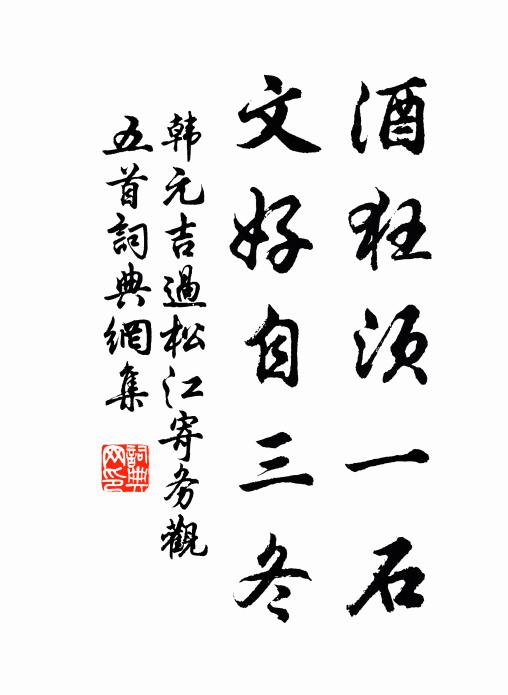 酒狂须一石
文好自三冬
韩元吉過松江寄务觀
五首詞典網集
詞典网印